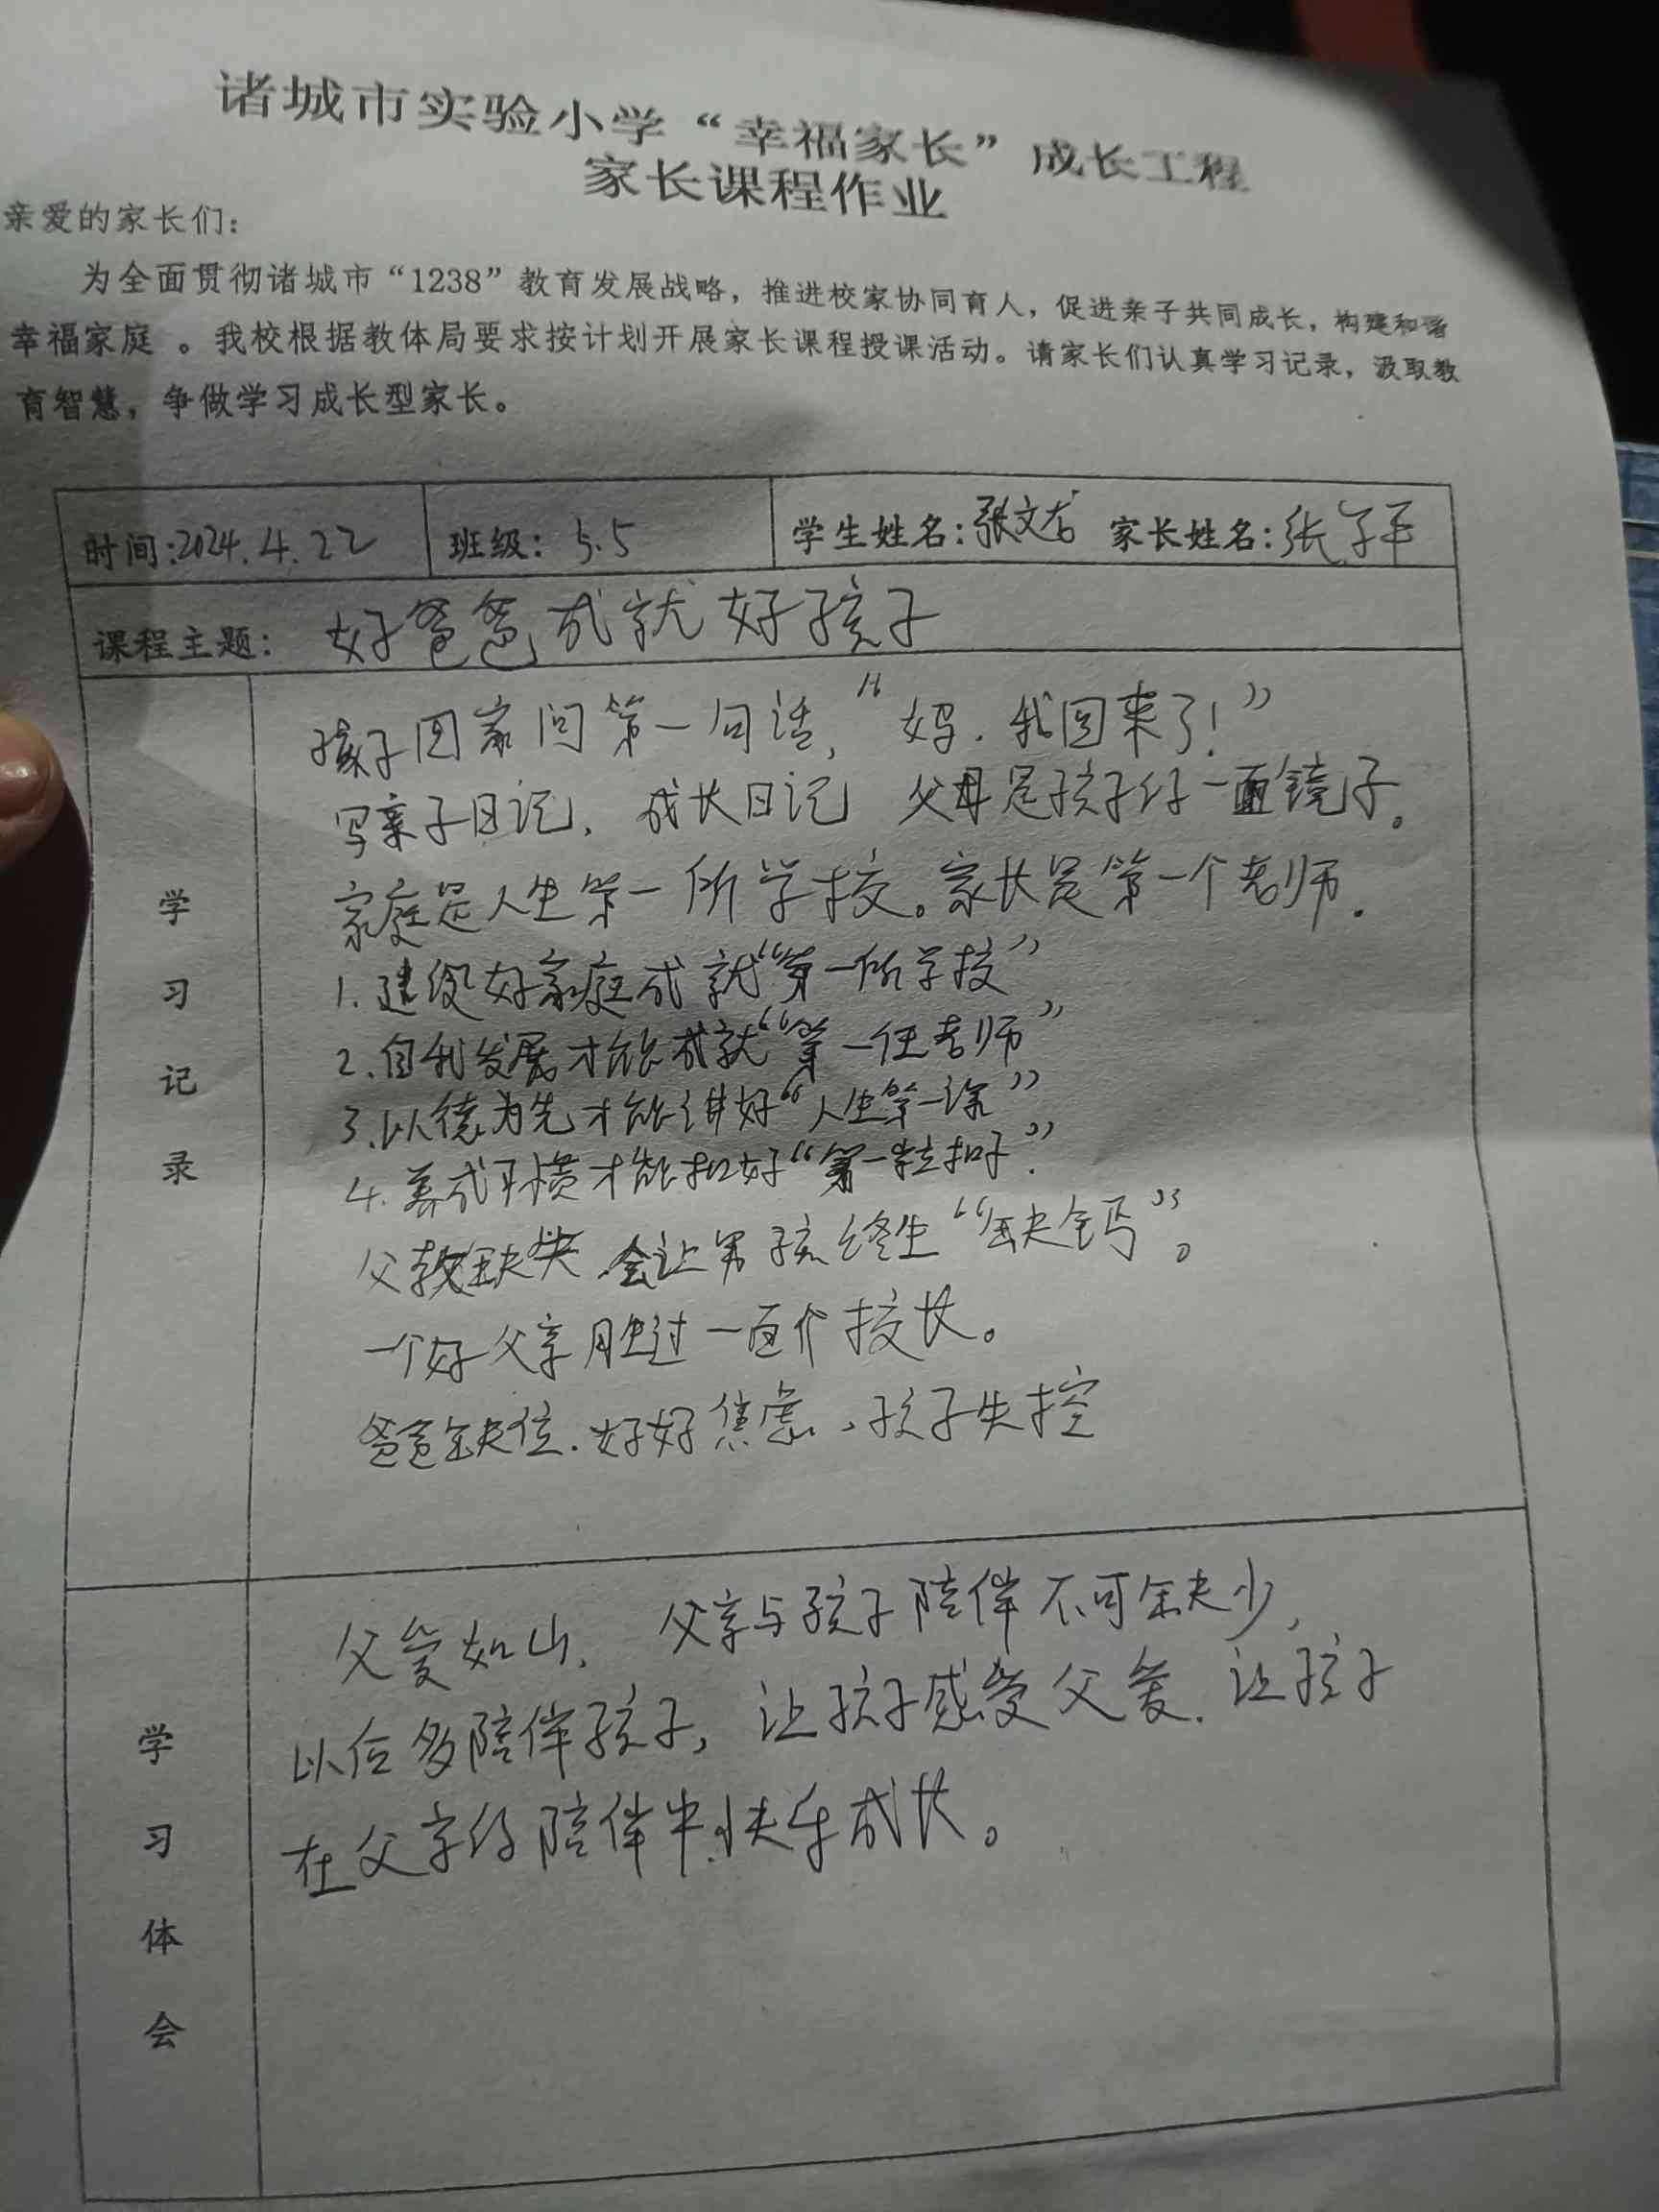 诸城市实验小学“幸福家长”成长工程
家长课程作业
亲爱的家长们：
为全面贯彻诸城市“1238”教育发展战略，推进校家协同育人，促进亲子共同成长，构建和谐
幸福家庭 。我校根据教体局要求按计划开展家长课程授课活动。请家长们认真学习记录，汲取教
育智慧，争做学习成长型家长。
时间：2024.4.22 班级：5.5 学生姓名：张文 家长姓名：张
课程主题： 好爸爸成就好孩子
学习记录
孩子回家问第一句话，“妈．我回来了！”
写亲子日记，成长日记 父母是孩子的一面镜子。
家庭是人生第一所学校。家长是第一个老师．
1.建设好家庭成就“第一所学校”
2.自我发展才能成就“第一任老师”
3.以德为先才能讲好“人生第一课”
4.养成习惯才能扣好“第一粒扣子”．
父教缺失 会让男孩终生“缺钙”。
一个好父亲胜过一百个校长。
爸爸缺位．好好焦虑、孩子失控
学习体会
父爱如山， 父亲与孩子陪伴不可缺少，
以后多陪伴孩子，让孩子感受父爱．让孩子
在父亲的陪伴中快乐成长。